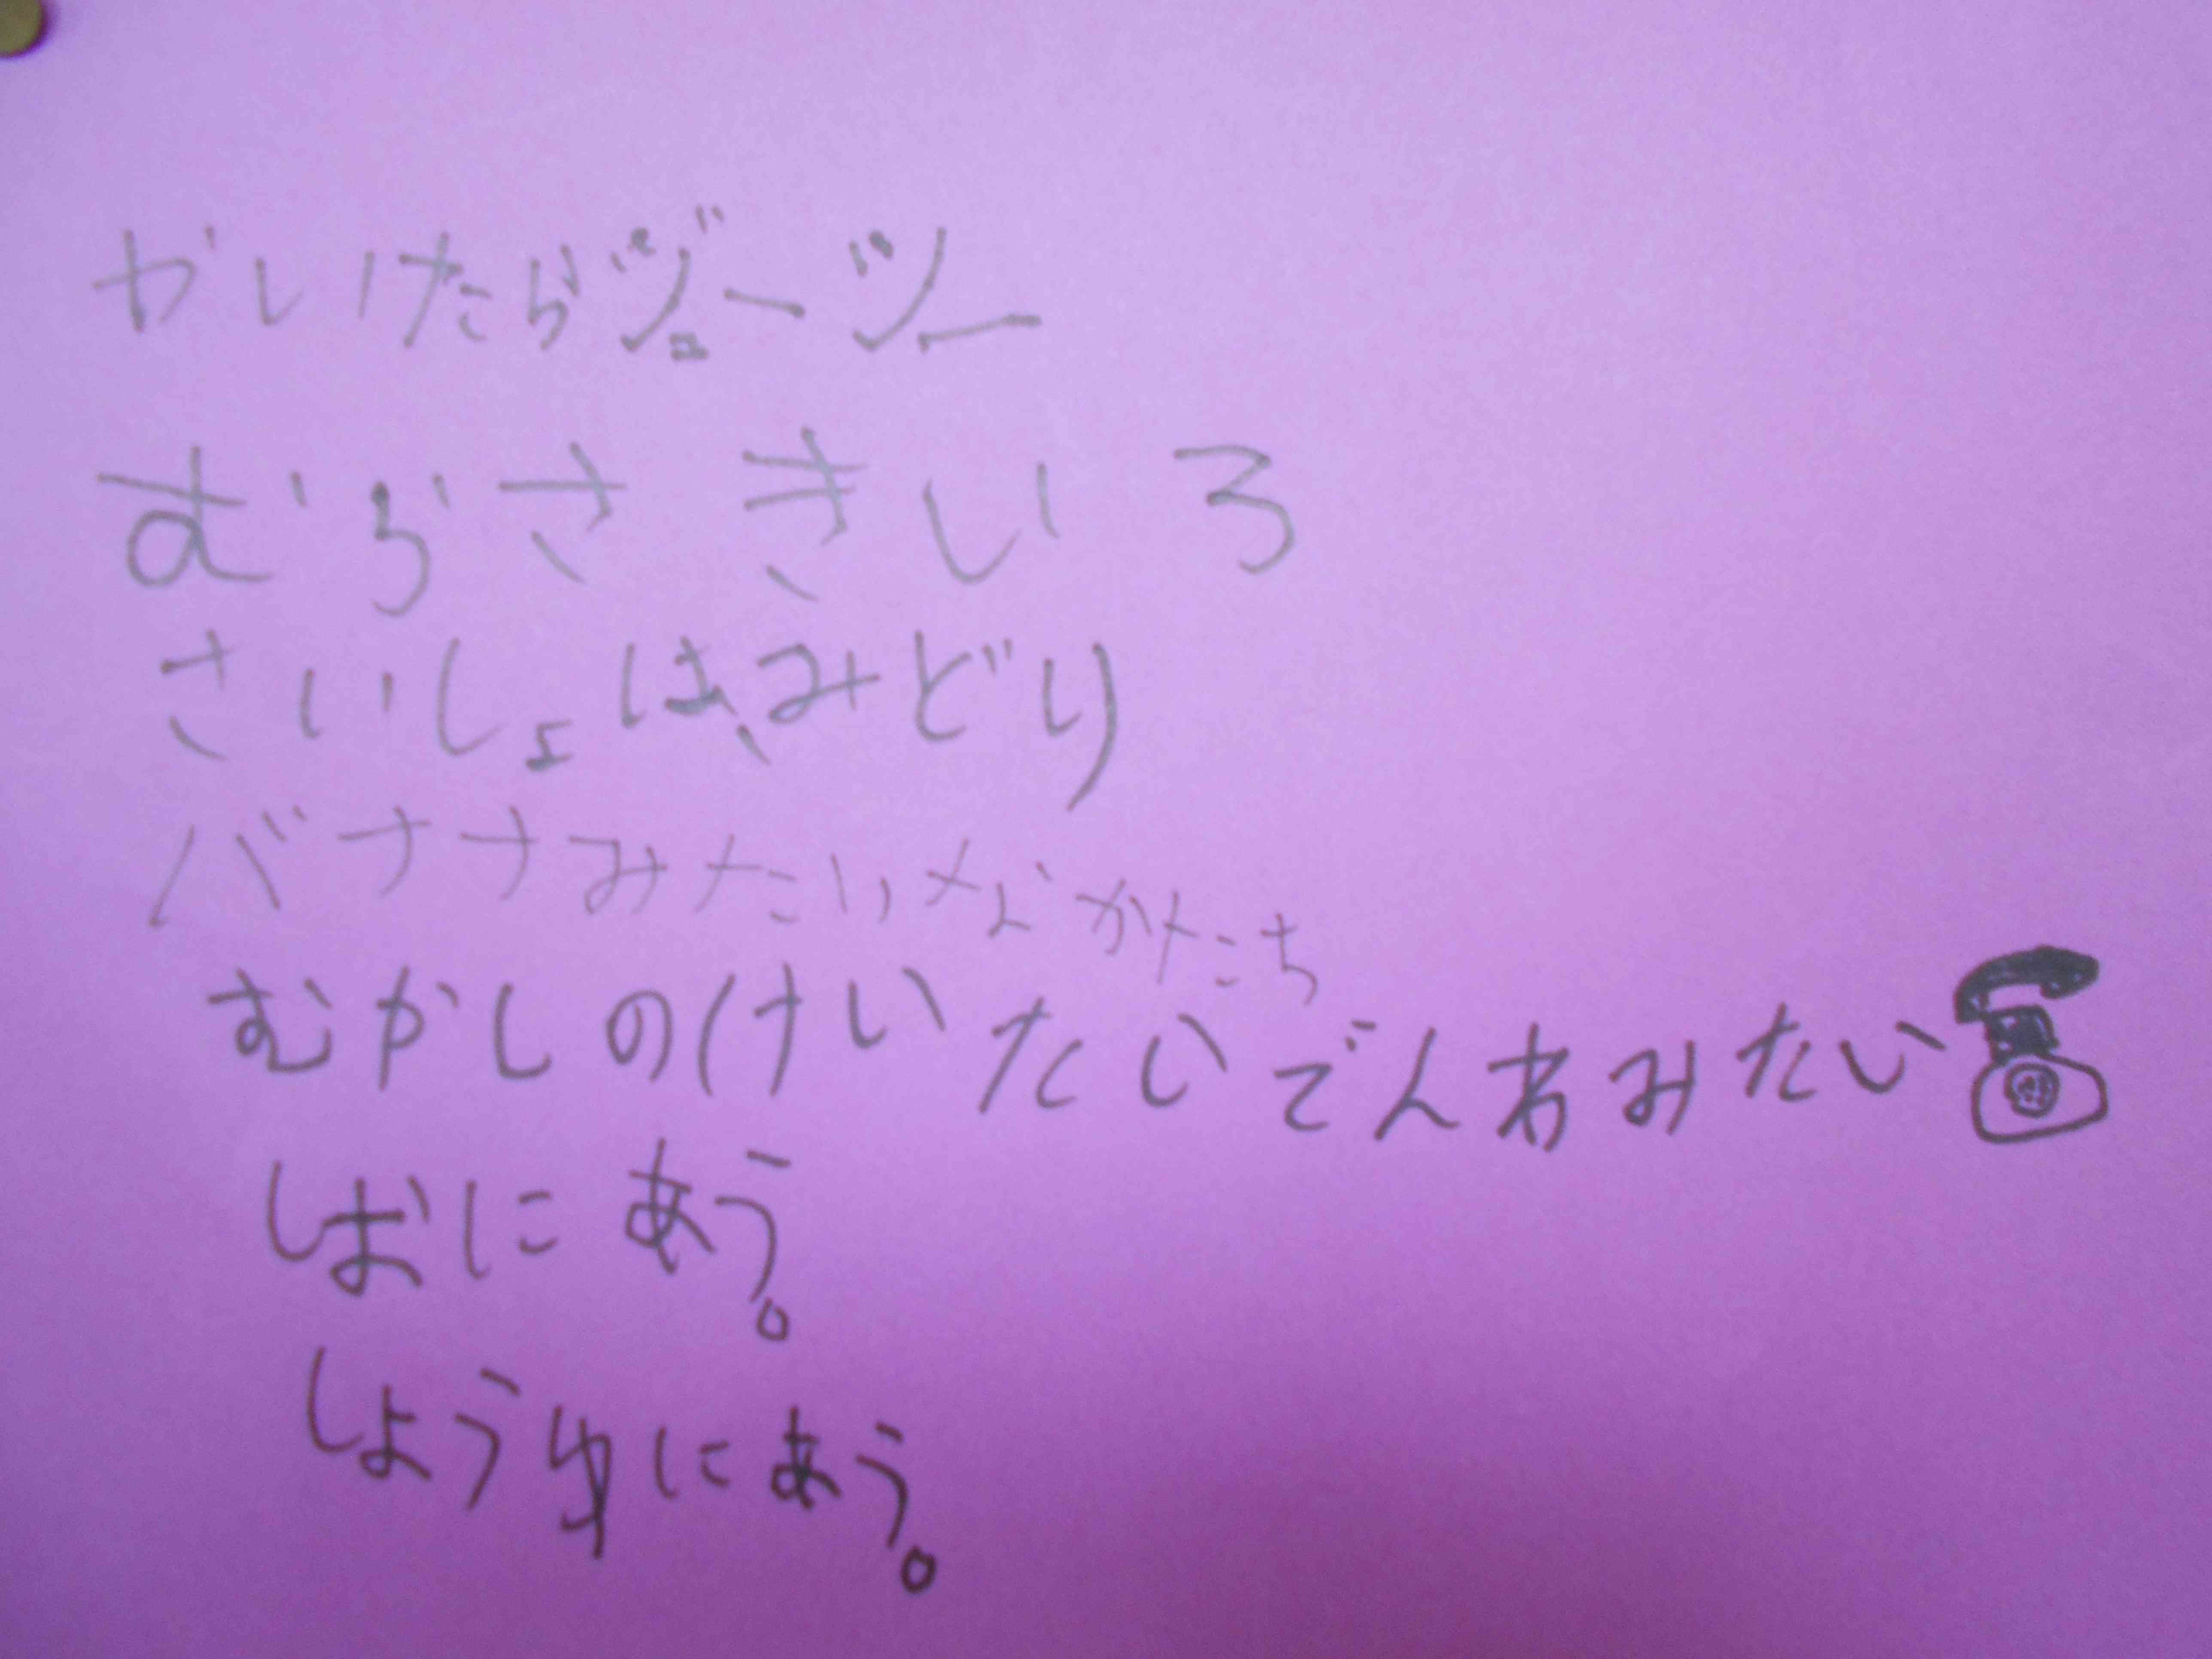 かいけたらジューシー
むらさきいろ
さいしょは、みどり
バナナみたいなかたち
むかしのけいたいでんわみたい
しおにあう。
しょうゆにあう。